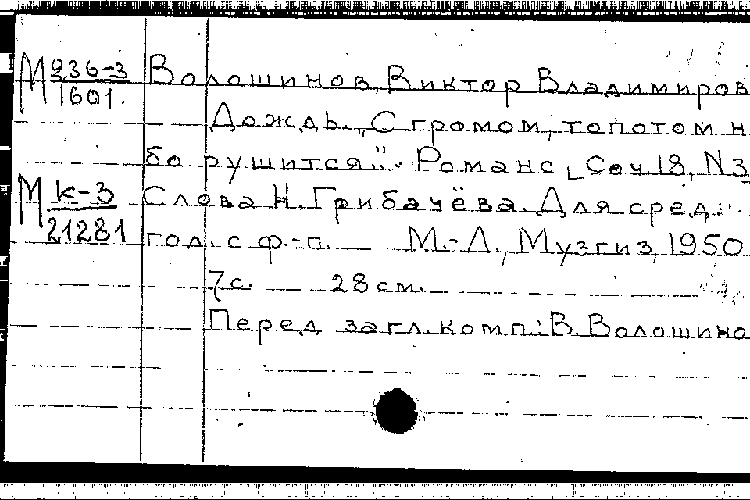 М 936-3/1601. Волошинов, Виктор Владимиров
Дождь. „С громом, топотом н
бо рушится". Романс [Соч 18, N3
М К-3/21281 Слова Н. Грибачёва. Для сред.
гол. с ф.-п. М.-Л., Музгиз, 1950
7с. 28 см.
Перед загл. комп: В. Волошино